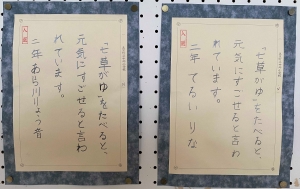 "七草がゆ"をたべると、
元気にすごせると言わ
れています。
二年 あら川りょう音
入選
"七草がゆ"をたべると、
元気にすごせると言わ
れています。
二年 てるい りな
入選